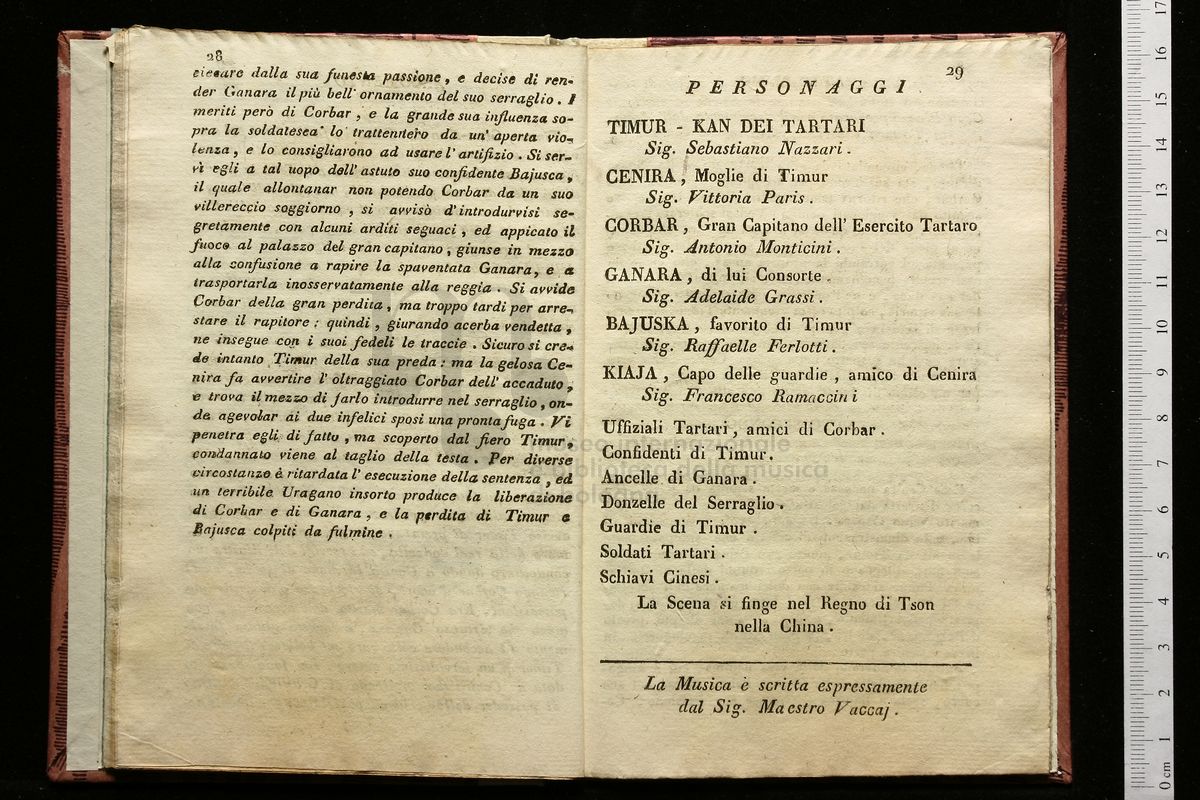 28
ciecare dalla sua funesta passione, e decise di ren-
der Ganara il più bell' ornamento del suo serraglio. I
meriti però di Corbar, e la grande sua influenza so-
pra la soldatesea lo trattennero da un' aperta vio-
lenza, e lo consigliarono ad usare l' artifizio. Si ser-
vì egli a tal uopo dell' astuto suo confidente Bajusca,
il quale allontanar non potendo Corbar da un suo
villereccio soggiorno, si avvisò d' introdurvisi se-
gretamente con alcuni arditi seguaci, ed appicato il
fuoco al palazzo del gran capitano, giunse in mezzo
alla confusione a rapire la spaventata Ganara, e a
trasportarla inosservatamente alla reggia. Si avvide
Corbar della gran perdita, ma troppo tardi per arre-
stare il rapitore: quindi, giurando acerba vendetta,
ne insegue con i suoi fedeli le traccie. Sicuro si cre-
de intanto Timur della sua preda: ma la gelosa Ce-
nira fa avvertire l' oltraggiato Corbar dell' accaduto,
e trova il mezzo di farlo introdurre nel serraglio, on-
de agevolar ai due infelici sposi una pronta fuga. Vi
penetra egli di fatto, ma scoperto dal fiero Timur,
condannato viene al taglio della testa. Per diverse
circostanze è ritardata l' esecuzione della sentenza, ed
un terribile Uragano insorto produce la liberazione
di Corbar e di Ganara, e la perdita di Timur e
Bajusca colpiti da fulmine.
29
PERSONAGGI
TIMUR - KAN DEI TARTARI
Sig. Sebastiano Nazzari.
CENIRA, Moglie di Timur
Sig. Vittoria Paris.
CORBAR, Gran Capitano dell' Esercito Tartaro
Sig. Antonio Monticini.
GANARA, di lui Consorte.
Sig. Adelaide Grassi.
BAJUSKA, favorito di Timur
Sig. Raffaelle Ferlotti.
KIAJA, Capo delle guardie, amico di Cenira
Sig. Francesco Ramaccini
Uffiziali Tartari, amici di Corbar.
Confidenti di Timur.
Ancelle di Ganara.
Donzelle del Serraglio.
Guardie di Timur.
Soldati Tartari.
Schiavi Cinesi.
La Scena si finge nel Regno di Tson
nella China.
La Musica è scritta espressamente
dal Sig. Maestro Vaccaj.
museo internazionale
e biblioteca della musica
di bologna
0 cm 1 2 3 4 5 6 7 8 9 10 11 12 13 14 15 16 17